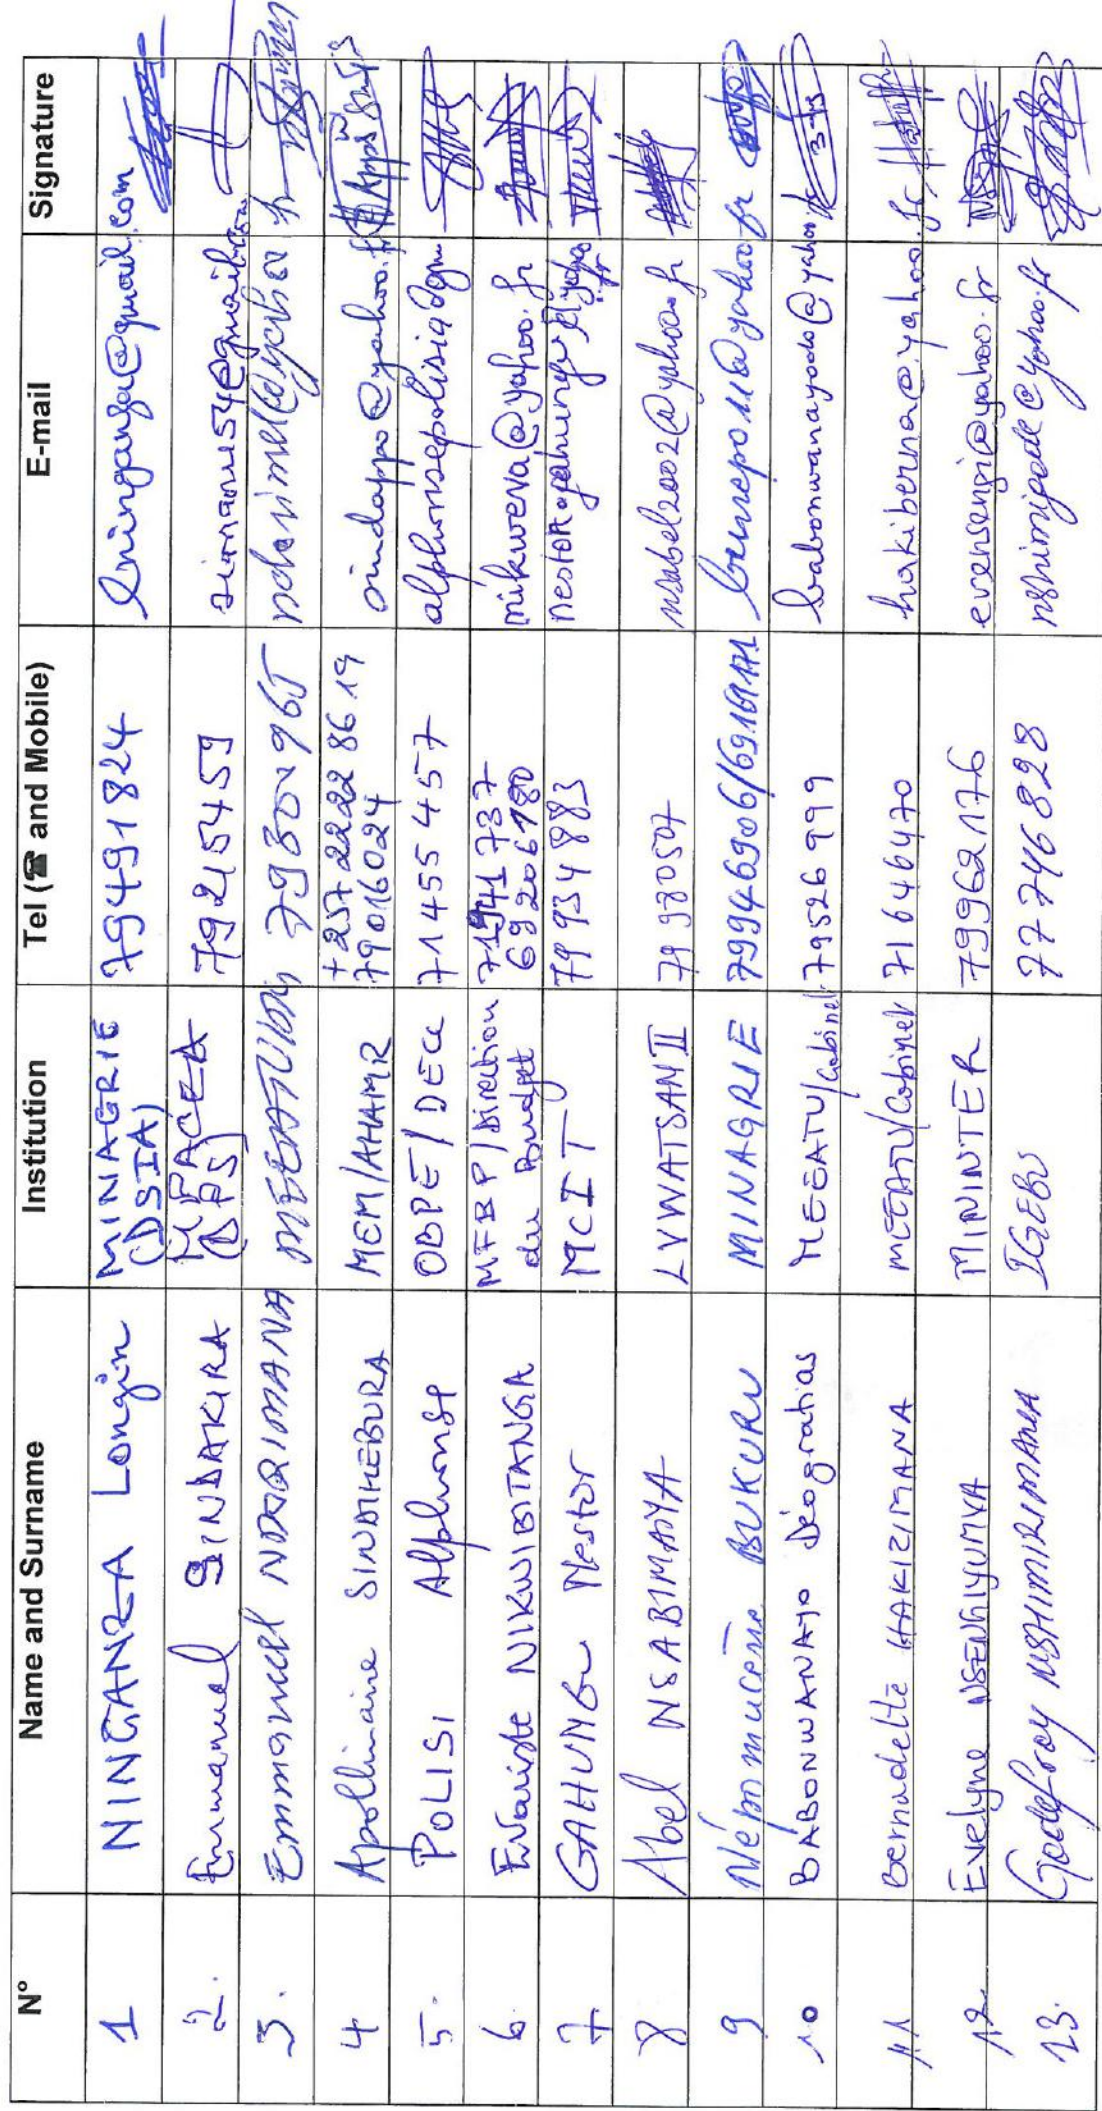 N° Name and Surname Institution Tel (☎ and Mobile) E-mail Signature
1 NINGANZA Longin MINAGRIE (DSIA) 79491824 lninganza@gmail.com
2. Emmanuel SINDAKIRA DPS 79215459
3. Emmanuel NDORIMANA MEEATU
4 Apollinaire SINDIHEBURA MEM/AHAMR +257 2222 86 19
79016024 sindappo@yahoo.fr
5. POLISI Alphonse OBPE/DECC 71455457
6. Evariste NIKWIBITANGA MFBP/Direction
du Budget 69206780 nikweva@yahoo.fr
7 GAHUNGU Nestor MCIT 79934883
8 Abel NSABIMANA LVWATSAN II 79980507 nsabel2002@yahoo.fr
9 Népomucène BUKURU MINAGRIE 79946906/69161171
10 BABONWANAYO Déogratias MEEATU/Cabinet 79526999 babonwanayodo@yahoo.fr
11 Bernadette HAKIZIMANA MEEATU/Cabinet 71646470 hakiberna@yahoo.fr
12. Evelyne NSENGIYUMVA MININTER 79962176 evensengi@yahoo.fr
13. Godefroy NSHIMIRIMANA IGEBU 77746828